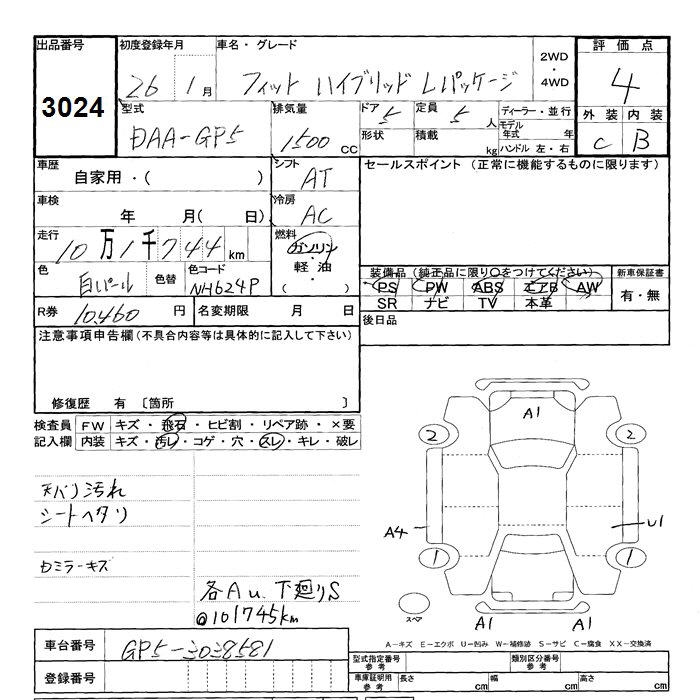 出品番号 初度登録年月 車名・グレード 2WD ・ 4WD 評価点
3024 26 1月 フィット ハイブリッド Lパッケージ 4
型式 排気量 ドア 5 定員 5 人 ディーラー・並行 外装 内装
DAA-GP5 1500 CC 形状 積載 kg モデル年式 年 C B
ハンドル 左・右
車歴 自家用・( ) シフト AT セールスポイント (正常に機能するものに限ります)
車検 年 月( 日) 冷房 AC
走行 10万1千744km 燃料 ガソリン・軽油・( )
色 白パール 色替 色コード NH624P 装備品(純正品に限り○をつけてください) 新車保証書
PS PW ABS エアB AW 有・無
SR ナビ TV 本革
R券 10,460 円 名変期限 月 日 後日品
注意事項申告欄(不具合内容等は具体的に記入して下さい)
修復歴 有 〔箇所 〕
検査員 FW キズ・飛石・ヒビ割・リペア跡・×要
記入欄 内装 キズ・汚レ・コゲ・穴・スレ・キレ・破レ
A1
2 2
天バリ汚れ
シートヘタリ
A4 U1
1 1
ミラーキズ
各AU. 下廻りS
@101745km
スペア A1 A1
A-キズ E-エクボ U-凹み W-補修跡 S-サビ C-腐食 XX-交換済
車台番号 GP5-3038581
型式指定番号 参考 類別区分番号 参考
登録番号 車庫証明用 参考 長さ cm 幅 cm 高さ cm